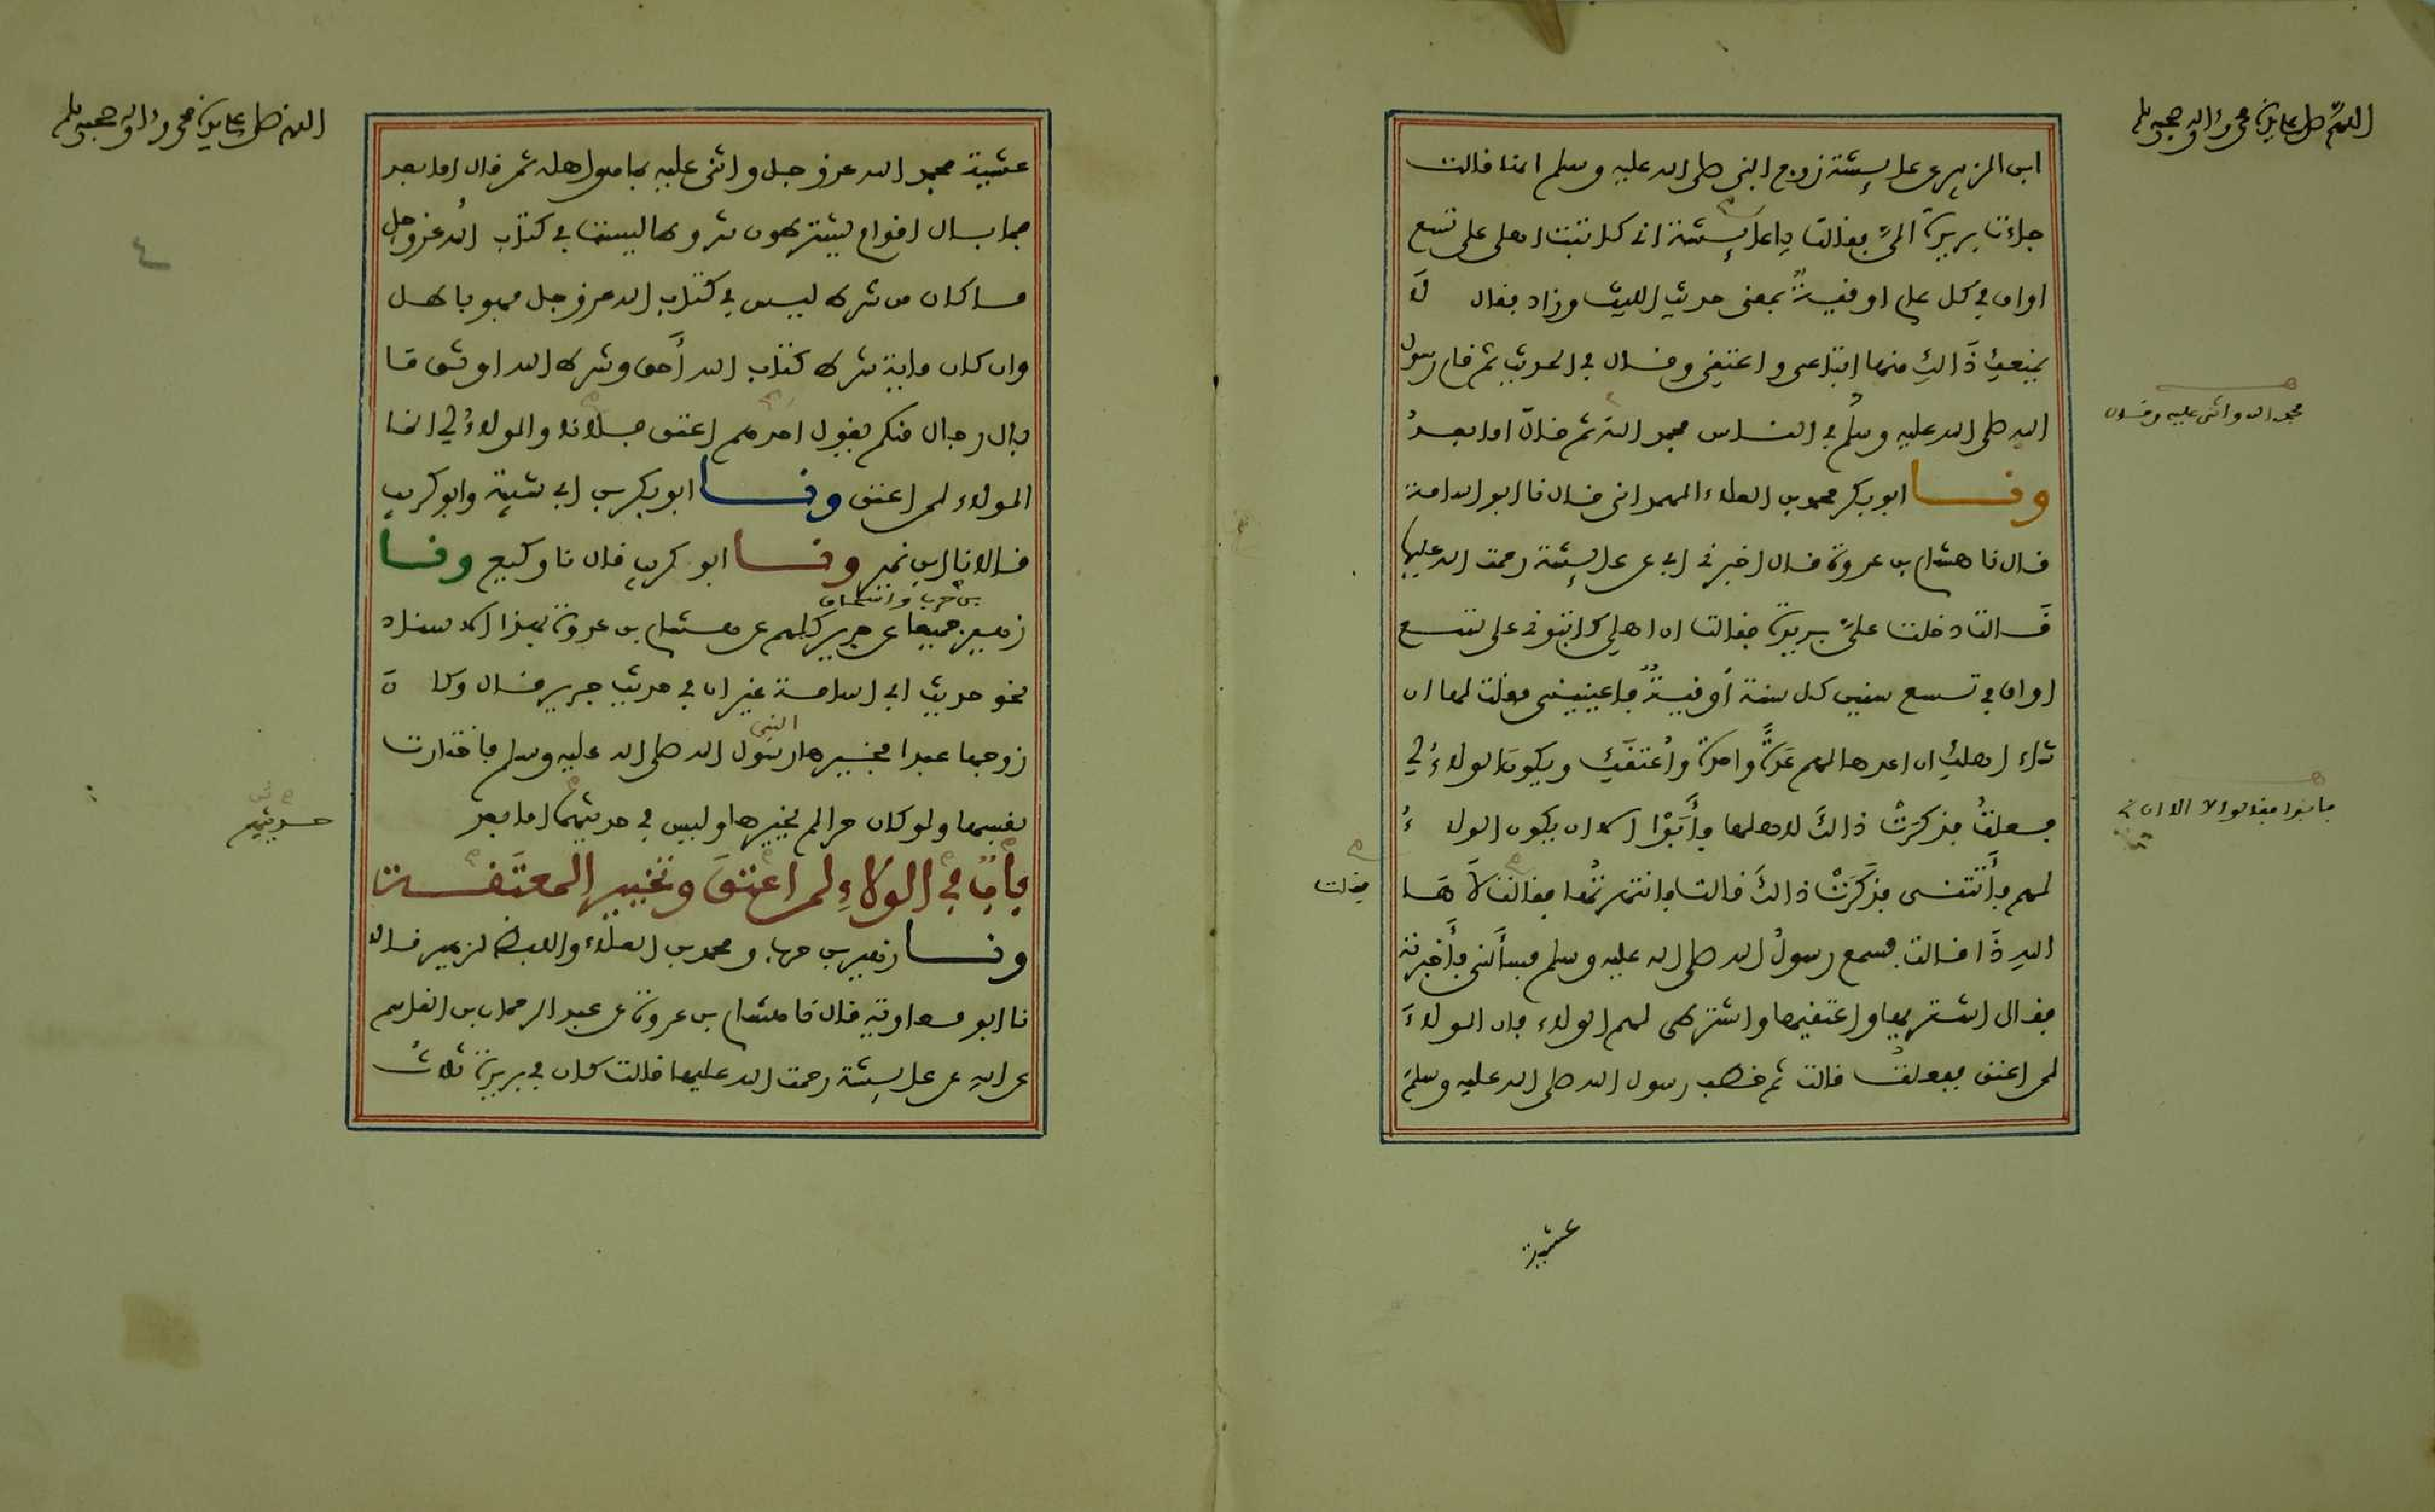 اللهم صل على سيدنا محمد وءاله وصحبه وسلم
ابن الزبير عن عايشة زوج النبي صلى الله عليه وسلم انها قالت
جاءت بريرة اليّ فقالت ياعايشة اني كاتبت اهلي على تسع
اواق في كل عام اوقية بمعنى حديث الليث وزاد فقال لَا
يمنعكِ ذَالكِ منها ابتاعي واعتقي وقال في الحديث ثم قام رسول
الله صلى الله عليه وسلم في الناس فحمد الله ثم قال اما بعدُ
فحمد الله واثنى عليه وقال
ونا ابو بكر محمد بن العلاء الهمداني قال نا ابو اسامة
قال نا هشام بن عروة قال اخبرني ابي عن عايشة رحمت الله عليها
قَالت دخلت عليَّ بريرة فقالت ان اهلي كاتبوني على تسع
اواق في تسع سنين كل سنة أوقيةٌ فاعينيني فقلت لها ان
شاء اهلكِ ان اعدها لهم عَدَّةً واحدة واُعتقَكِ ويكونَ الولاءُ لي
فعلتُ فذكرَتْ ذالكَ لاهلها فأَبَوْا الا ان يكون الولاءُ
فابوا فقالوا لا الا ان
لهم فأَتتنى فذكَرَتْ ذالكَ قالت فانتهرتُها فقالت لَاهَا
فقلت
اللهِ ذَا قالت فسمع رسولُ الله صلى الله عليه وسلم فسأَلني فأَخبرته
فقال اشتريها واعتقيها واشترطى لهم الولاء فان الولاءَ
لمن اعتق ففعلتُ قالت ثم خطب رسول الله صلى الله عليه وسلم
عشية
اللهم صل على سيدنا محمد وءاله وصحبه وسلم
٤
عشية فحمد الله عز وجل واثنى عليه بما هو اهله ثم قال اما بعد
فما بال اقوام يشترطون شروطا ليست في كتاب الله عز وجل
ما كان من شرط ليس في كتاب الله عز وجل فهو باطل
وان كان ماية شرط كتاب الله أَحق وشرط الله اوثق مَا
بال رجال منكم يقول احدهم اعتق فلانا والولاءُ لي انما
الولاء لمن اعتق ونا ابو بكر بن ابي شيبة وابو كريب
قالا نا ابن نمير ونا ابو كريب قال نا وكيع ونا
بن حرب واسحاق
زهير جميعا عن جرير كلهم عن هشام بن عروة بهذا الاسناد
نحو حديث ابي اسامة غير ان في حديث جرير قال وكانَ
النبي
زوجها عبدا فخيرها رسول الله صلى الله عليه وسلم فاختارت
نفسها ولو كان حرا لم يخيرها وليس في حديثهما اما بعد
حديثهم
بابٌ في الولاءِ لمن اعتقَ وتخيير المعتَقـة
ونا زهير بن حرب ومحمد بن العلاء واللفظ لزهير قالا
نا ابو معاوية قال نا هشام بن عروة عن عبد الرحمان بن القاسم
عن ابيه عن عايشة رحمت الله عليها قالت كان في بريرة ثلاثُ